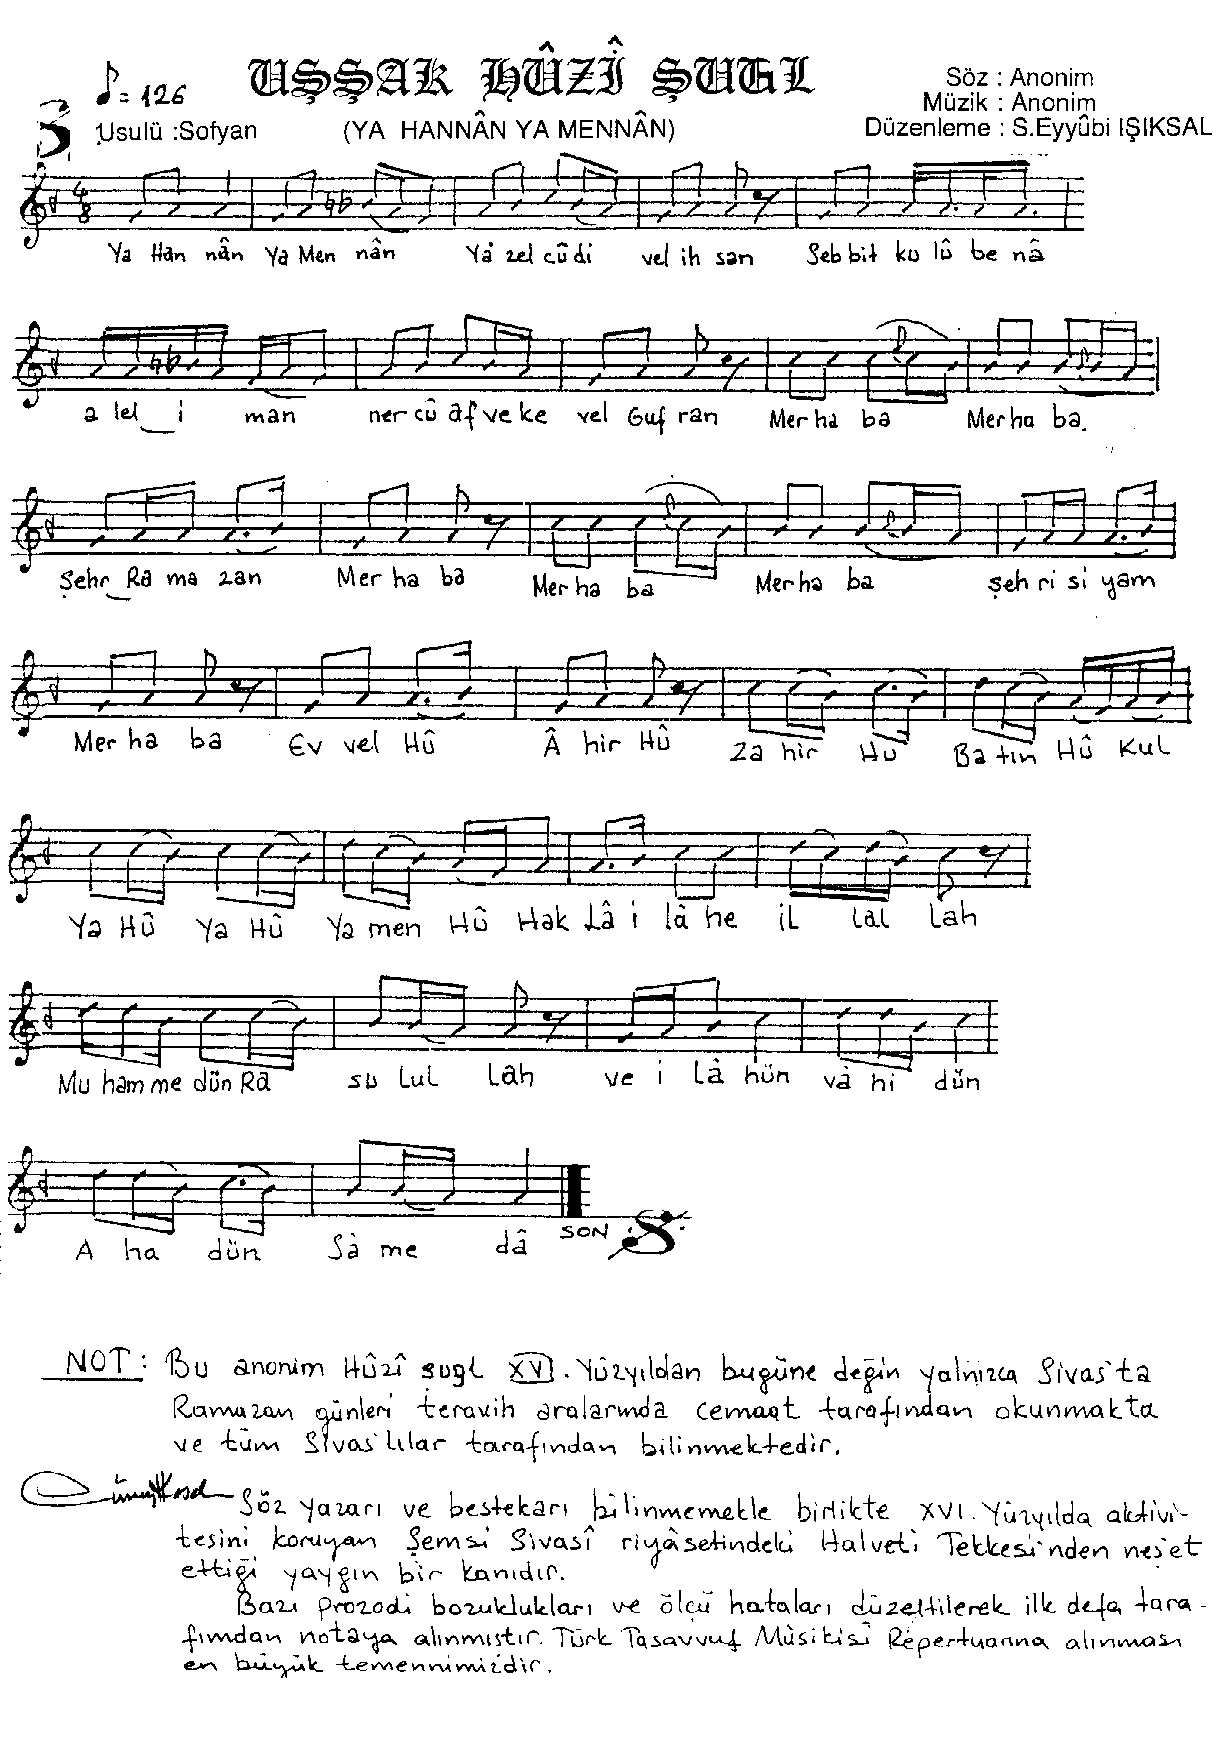 UŞŞAK HÛZÎ ŞUGL
♪= 126
Söz : Anonim
Müzik : Anonim
Usulü :Sofyan
(YA HANNÂN YA MENNÂN)
Düzenleme : S.Eyyûbi IŞIKSAL
4/8
Ya Han nân Ya Men nân Yâ zel cûdi vel ih san Seb bit ku lû be nâ
a lel_i man ner cû af ve ke vel Guf ran Mer ha ba Mer ha ba.
Şehr_Ra ma zan Mer ha ba Mer ha ba Mer ha ba şeh ri si yam
Mer ha ba Ev vel Hû Â hir Hû Za hir Hu Ba tın Hû Kul
Ya Hû Ya Hû Ya men Hû Hak Lâ i lâ he il lal lah
Mu ham me dün Ra su lul Lah ve i Lâ hün vâ hi dün
A ha dün Sà me dâ SON
NOT : Bu anonim Hûzî şugl XVI. Yüzyıldan bugüne değin yalnızca Sivas'ta
Ramazan günleri teravih aralarında cemaat tarafından okunmakta
ve tüm Sivas'lılar tarafından bilinmektedir.
Söz yazarı ve bestekarı bilinmemekle birlikte XVI. Yüzyılda aktivi-
tesini koruyan Şemsi Sivasî riyâsetindeki Halveti Tekkesi'nden neş'et
ettiği yaygın bir kanıdır.
Bazı prozodi bozuklukları ve ölçü hataları düzeltilerek ilk defa tara-
fımdan notaya alınmıştır. Türk Tasavvuf Mûsikisi Repertuarına alınması
en büyük temennimizdir.